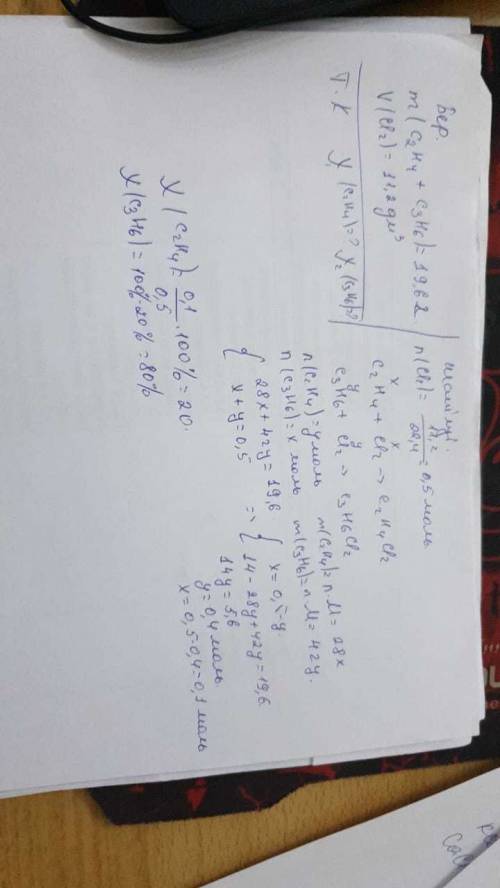 Бер.
m(C₂H₄ + C₃H₆) = 19,6 г
V(Cl₂) = 11,2 дм³
Т.к χ₁(C₂H₄)=? χ₂(C₃H₆)=?
Шешуі.
n(Cl₂) = 11,2/22,4 = 0,5 моль
x x
C₂H₄ + Cl₂ → C₂H₄Cl₂
y y
C₃H₆ + Cl₂ → C₃H₆Cl₂
n(C₂H₄) = y моль m(C₂H₄) = n·M = 28x
n(C₃H₆) = x моль m(C₃H₆) = n·M = 42y.
{ 28x + 42y = 19,6
x + y = 0,5
=> { x = 0,5-y
14 - 28y + 42y = 19,6
14y = 5,6
y = 0,4 моль
x = 0,5-0,4 = 0,1 моль
χ(C₂H₄) = 0,1/0,5 · 100% = 20.
χ(C₃H₆) = 100%-20% = 80%